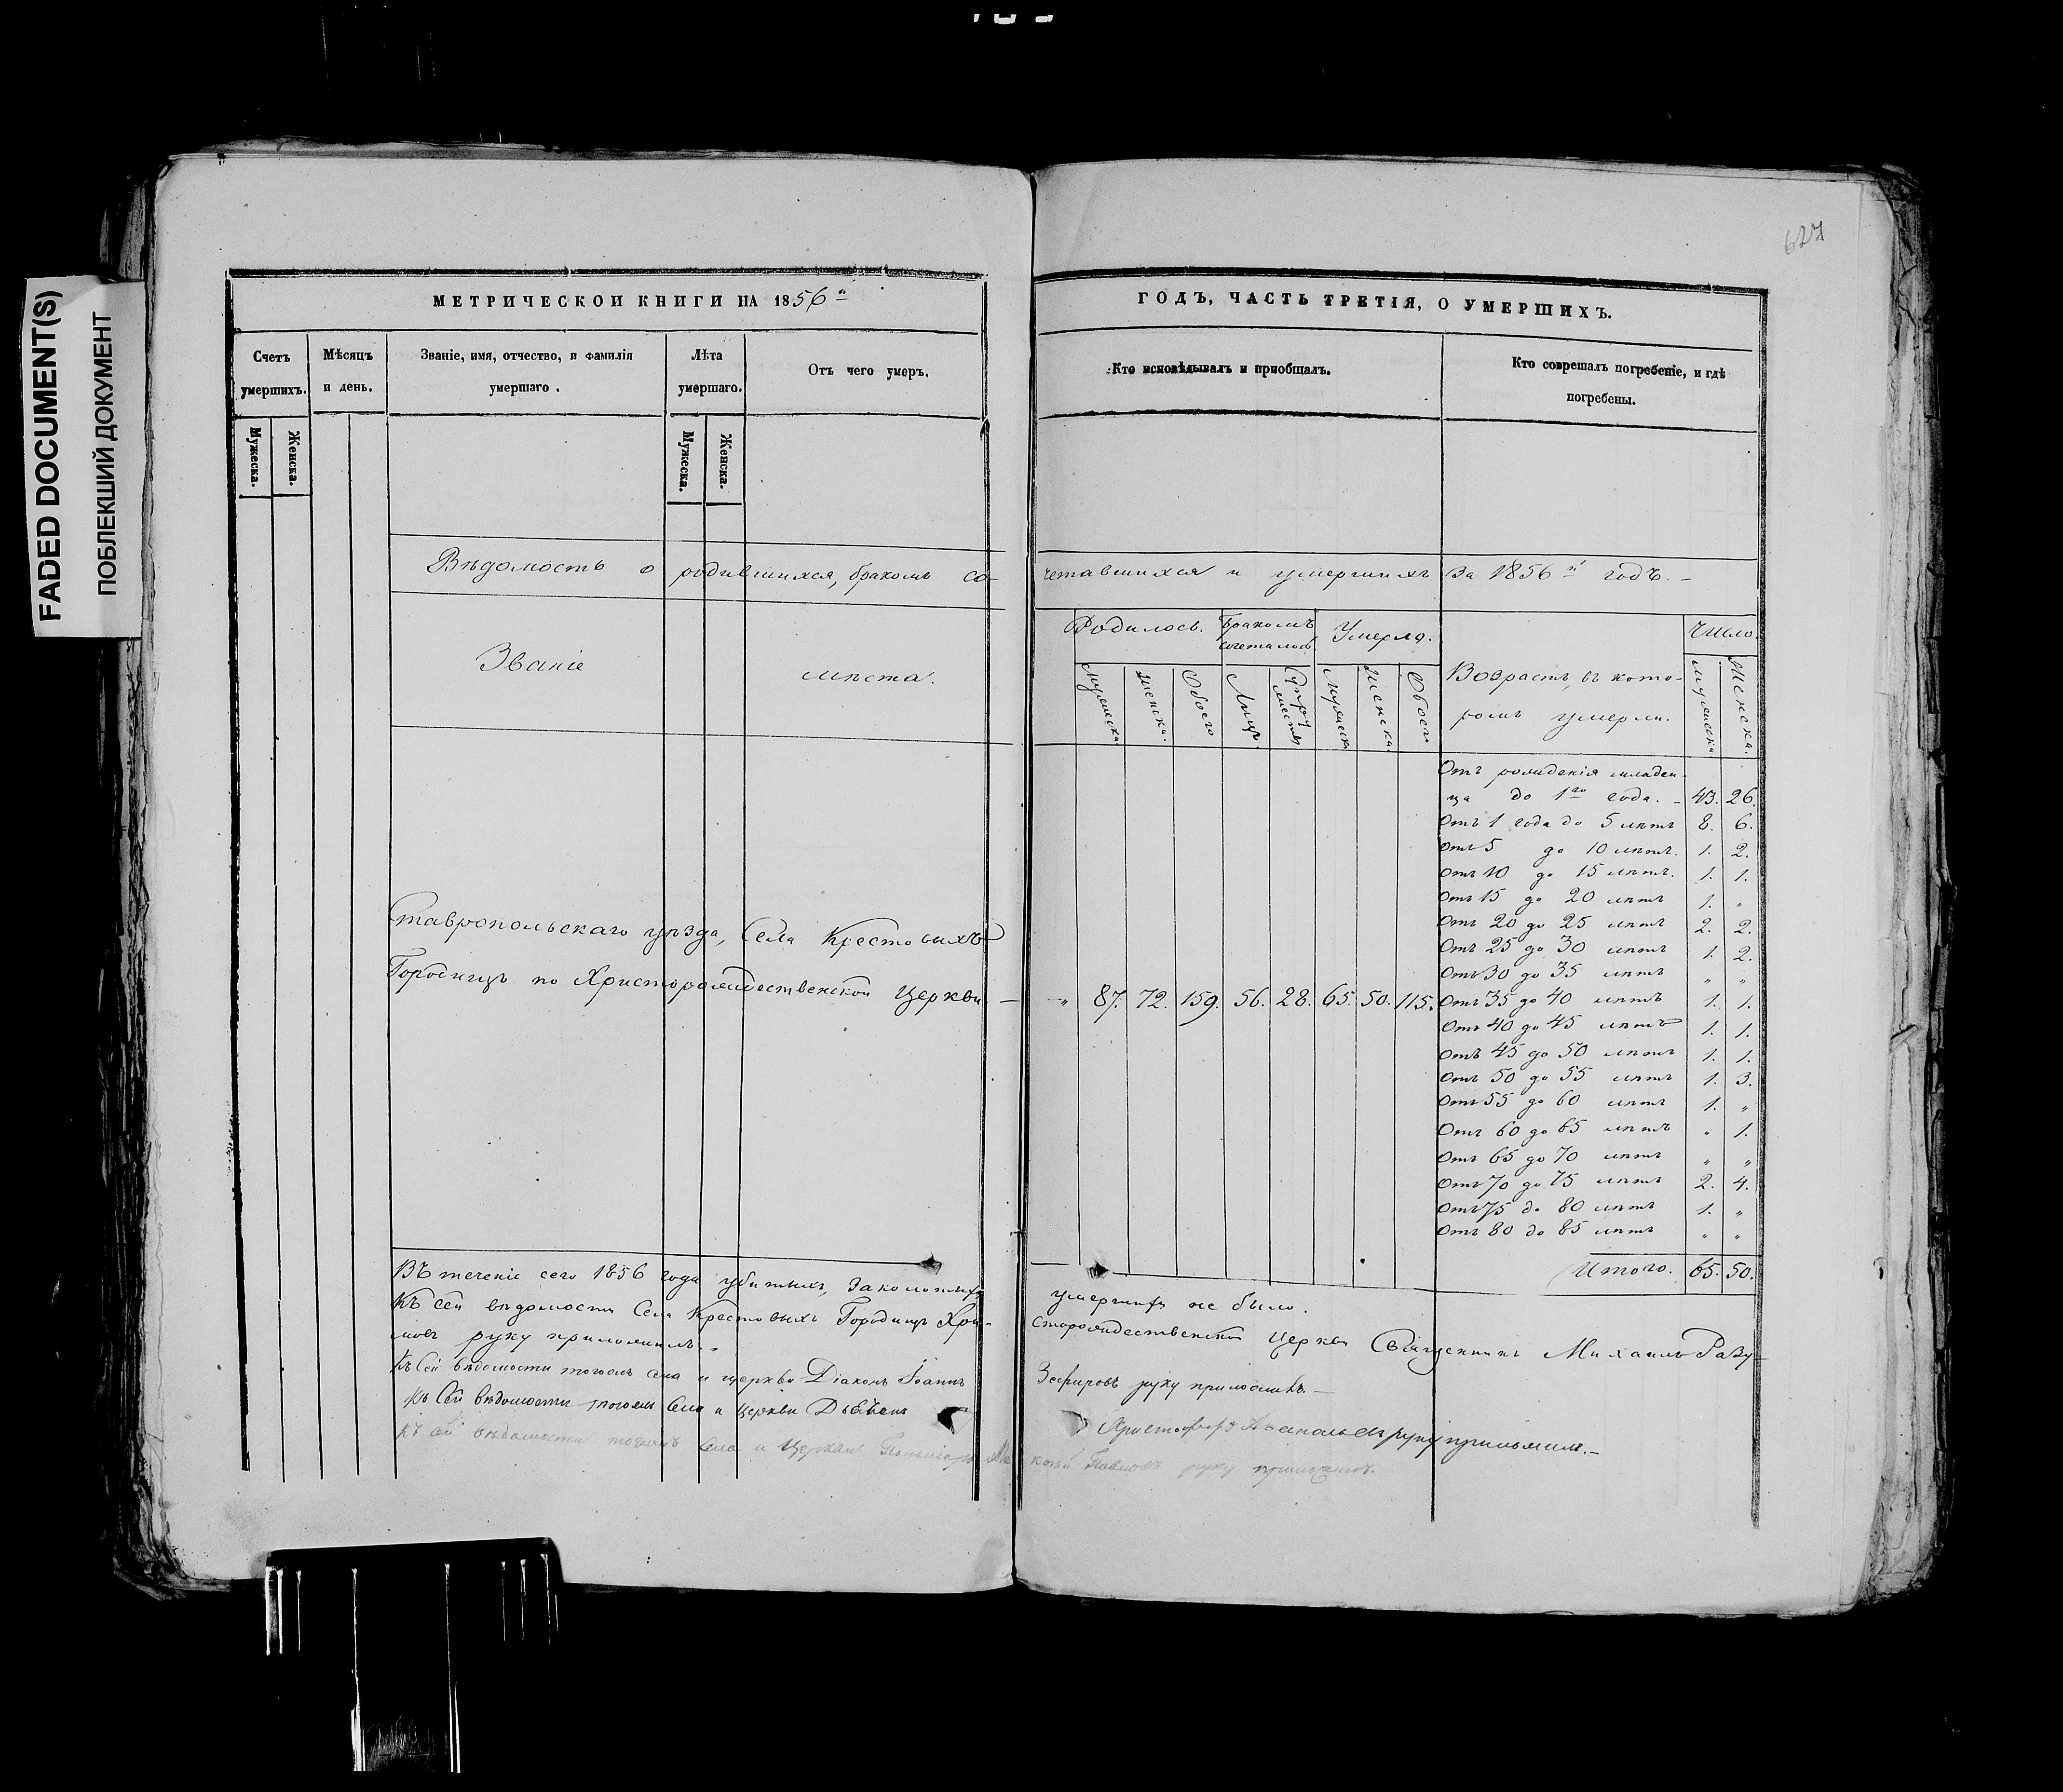 FADED DOCUMENT(S)
ПОБЛЕКШИЙ ДОКУМЕНТ
627
МЕТРИЧЕСКОЙ КНИГИ НА 1856й
ГОДЪ, ЧАСТЬ ТРЕТІЯ, О УМЕРШИХЪ.
Счетъ умершихъ.
Мѣсяцъ и день.
Званіе, имя, отчество, и фамилія умершаго.
Лѣта умершаго.
Отъ чего умеръ.
Кто исповѣдывалъ и приобщалъ.
Кто соврешалъ погребеніе, и гдѣ погребены.
Мужеска.
Женска.
Мужеска.
Женска.
Вѣдомость о родившихся, бракомъ сочетавшихся и умершихъ за 1856й годъ.
Званіе мѣста.
Родилось.
Бракомъ
Умерло.
Число.
Мужеска
Женска.
Обоего
Лицъ
Мужеск
Женска.
Обоего
Возрастъ, въ кото-
ромъ умерли.
Мужеска
Женска.
Отъ рожденія младен-
ца до 1го года. 43. 26.
Отъ 1 года до 5 лѣтъ 8. 6.
Отъ 5 до 10 лѣтъ. 1. 2.
Отъ 10 до 15 лѣтъ. 1. 1.
Отъ 15 до 20 лѣтъ 1. "
Отъ 20 до 25 лѣтъ 2. 2.
Отъ 25 до 30 лѣтъ 1. 2.
Отъ 30 до 35 лѣтъ " "
Отъ 35 до 40 лѣтъ 1. 1.
Отъ 40 до 45 лѣтъ 1. 1.
Отъ 45 до 50 лѣтъ 1. 1.
Отъ 50 до 55 лѣтъ 1. 3.
Отъ 55 до 60 лѣтъ 1. "
Отъ 60 до 65 лѣтъ " 1.
Отъ 65 до 70 лѣтъ " "
Отъ 70 до 75 лѣтъ 2. 4.
Отъ 75 до 80 лѣтъ 1. "
Отъ 80 до 85 лѣтъ " "
Итого. 65. 50.
Ставропольскаго уѣзда, Села Крестовыхъ
Городищъ по Христорождественской Церкви — " 87. 72. 159. 56. 28. 65. 50. 115.
Въ теченіе сего 1856 года убитыхъ, умершихъ не было.
Къ сей вѣдомости Села Крестовыхъ Городищъ Христорождественской Церкви Священникъ Михаилъ Разу-
мовъ руку приложилъ.
Къ сей вѣдомости тогожъ села и церкви Діаконъ Іоаннъ Зефировъ руку приложилъ.
Къ сей вѣдомости тогожъ села и Церкви Дьячекъ Христофоръ руку приложилъ.
Къ сей вѣдомости тогожъ села и Церкви Пономарь руку приложилъ.